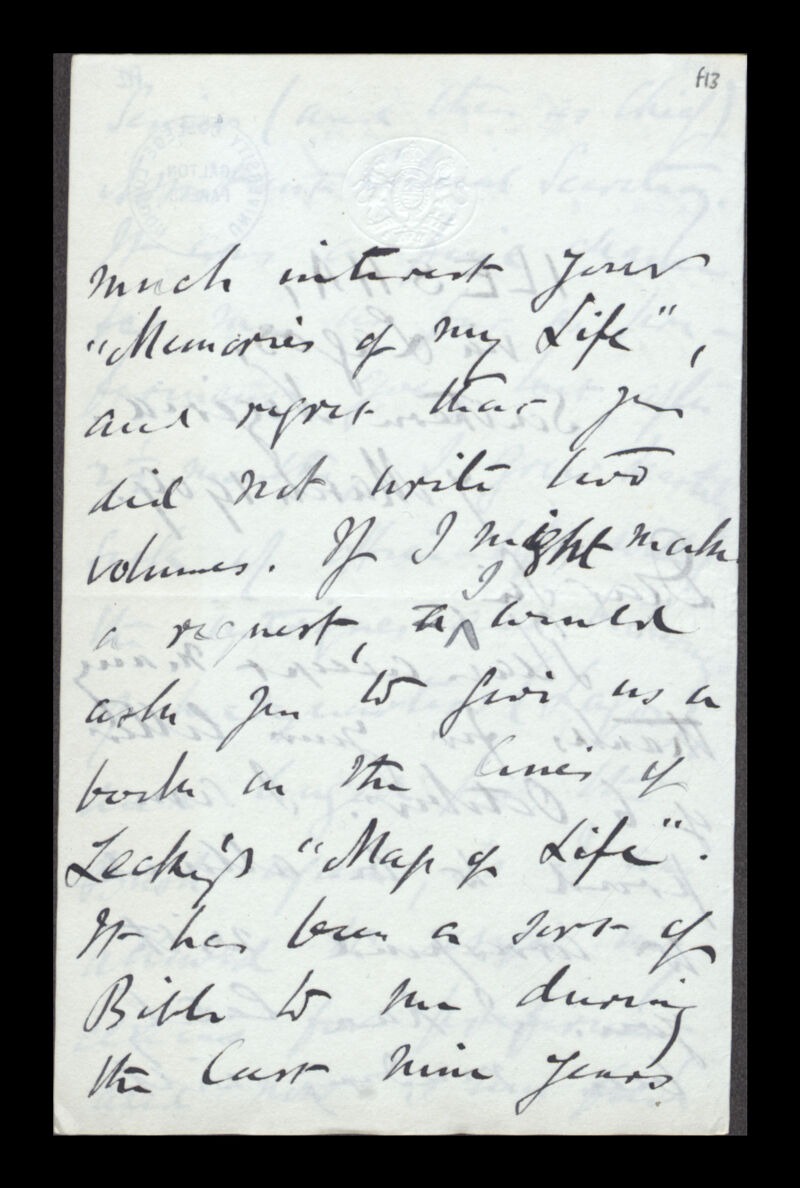 f13
much interest your
"Memories of my Life",
and regret that you
did not write two
volumes. If I might make
a request, I would
ask you to give us a
book on the lines of
Lecky's "Map of Life".
It has been a sort of
Bible to me during
the last nine years